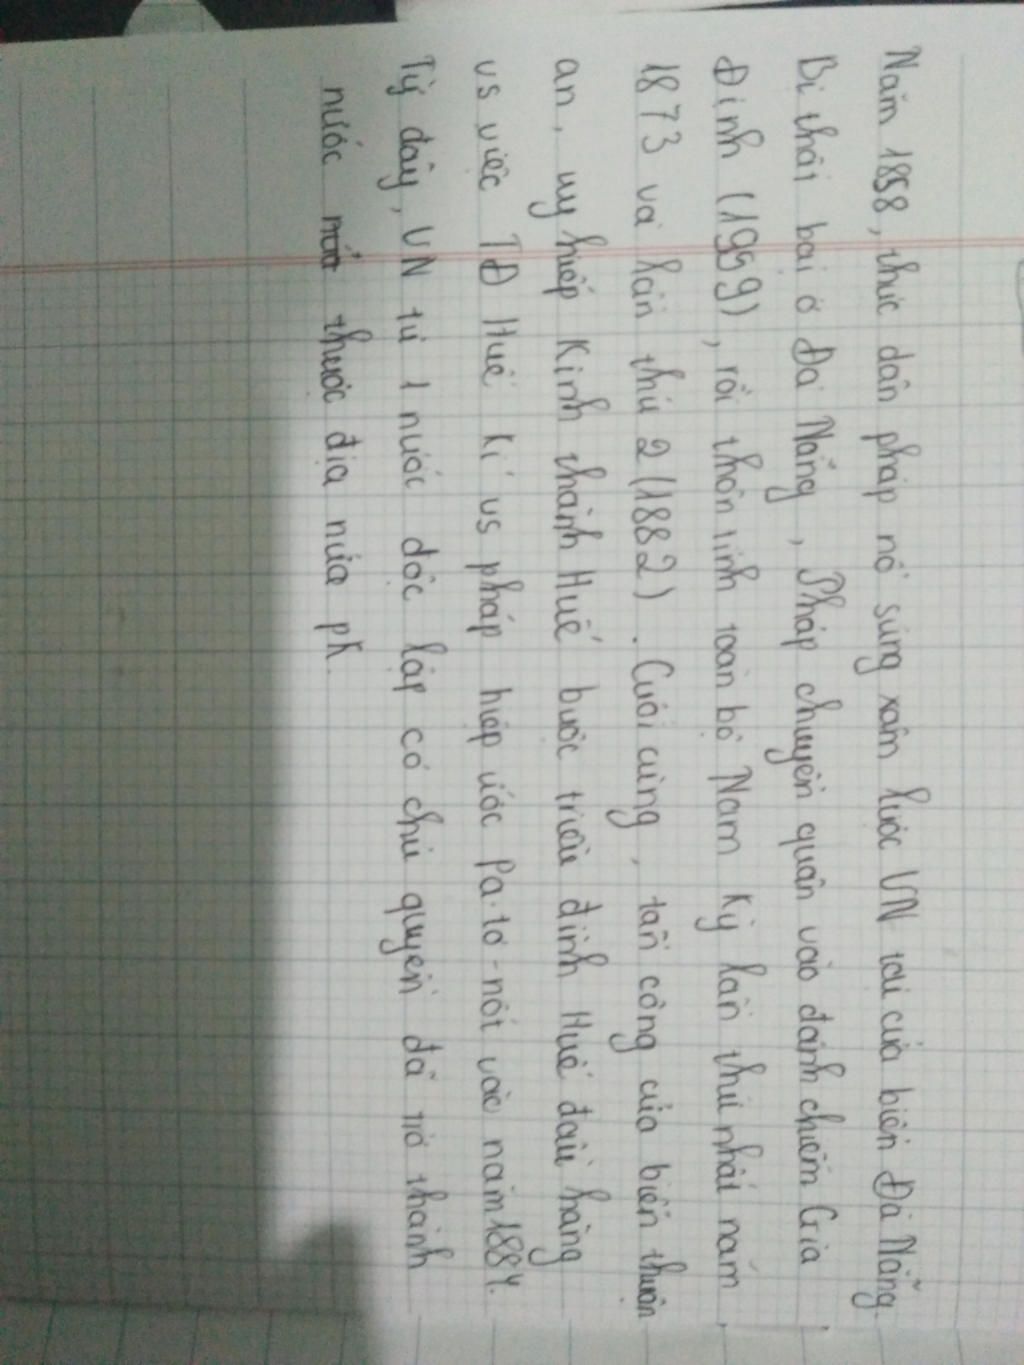 Năm 1858, thực dân pháp nổ súng xâm lược VN tại cửa biển Đà Nẵng.
Bị thất bại ở Đà Nẵng, Pháp chuyển quân vào đánh chiếm Gia
Định (1959), rồi thôn tính toàn bộ Nam Kỳ lần thứ nhất năm
1873 và lần thứ 2 (1882). Cuối cùng, tấn công cửa biển thuận
an, uy hiếp Kinh thành Huế buộc triều đình Huế đầu hàng
vs việc TĐ Huế kí vs pháp hiệp ước Pa-tơ-nốt vào năm 1884.
Từ đây, VN từ 1 nước độc lập có chủ quyền đã trở thành
nước thuộc địa nửa pk.